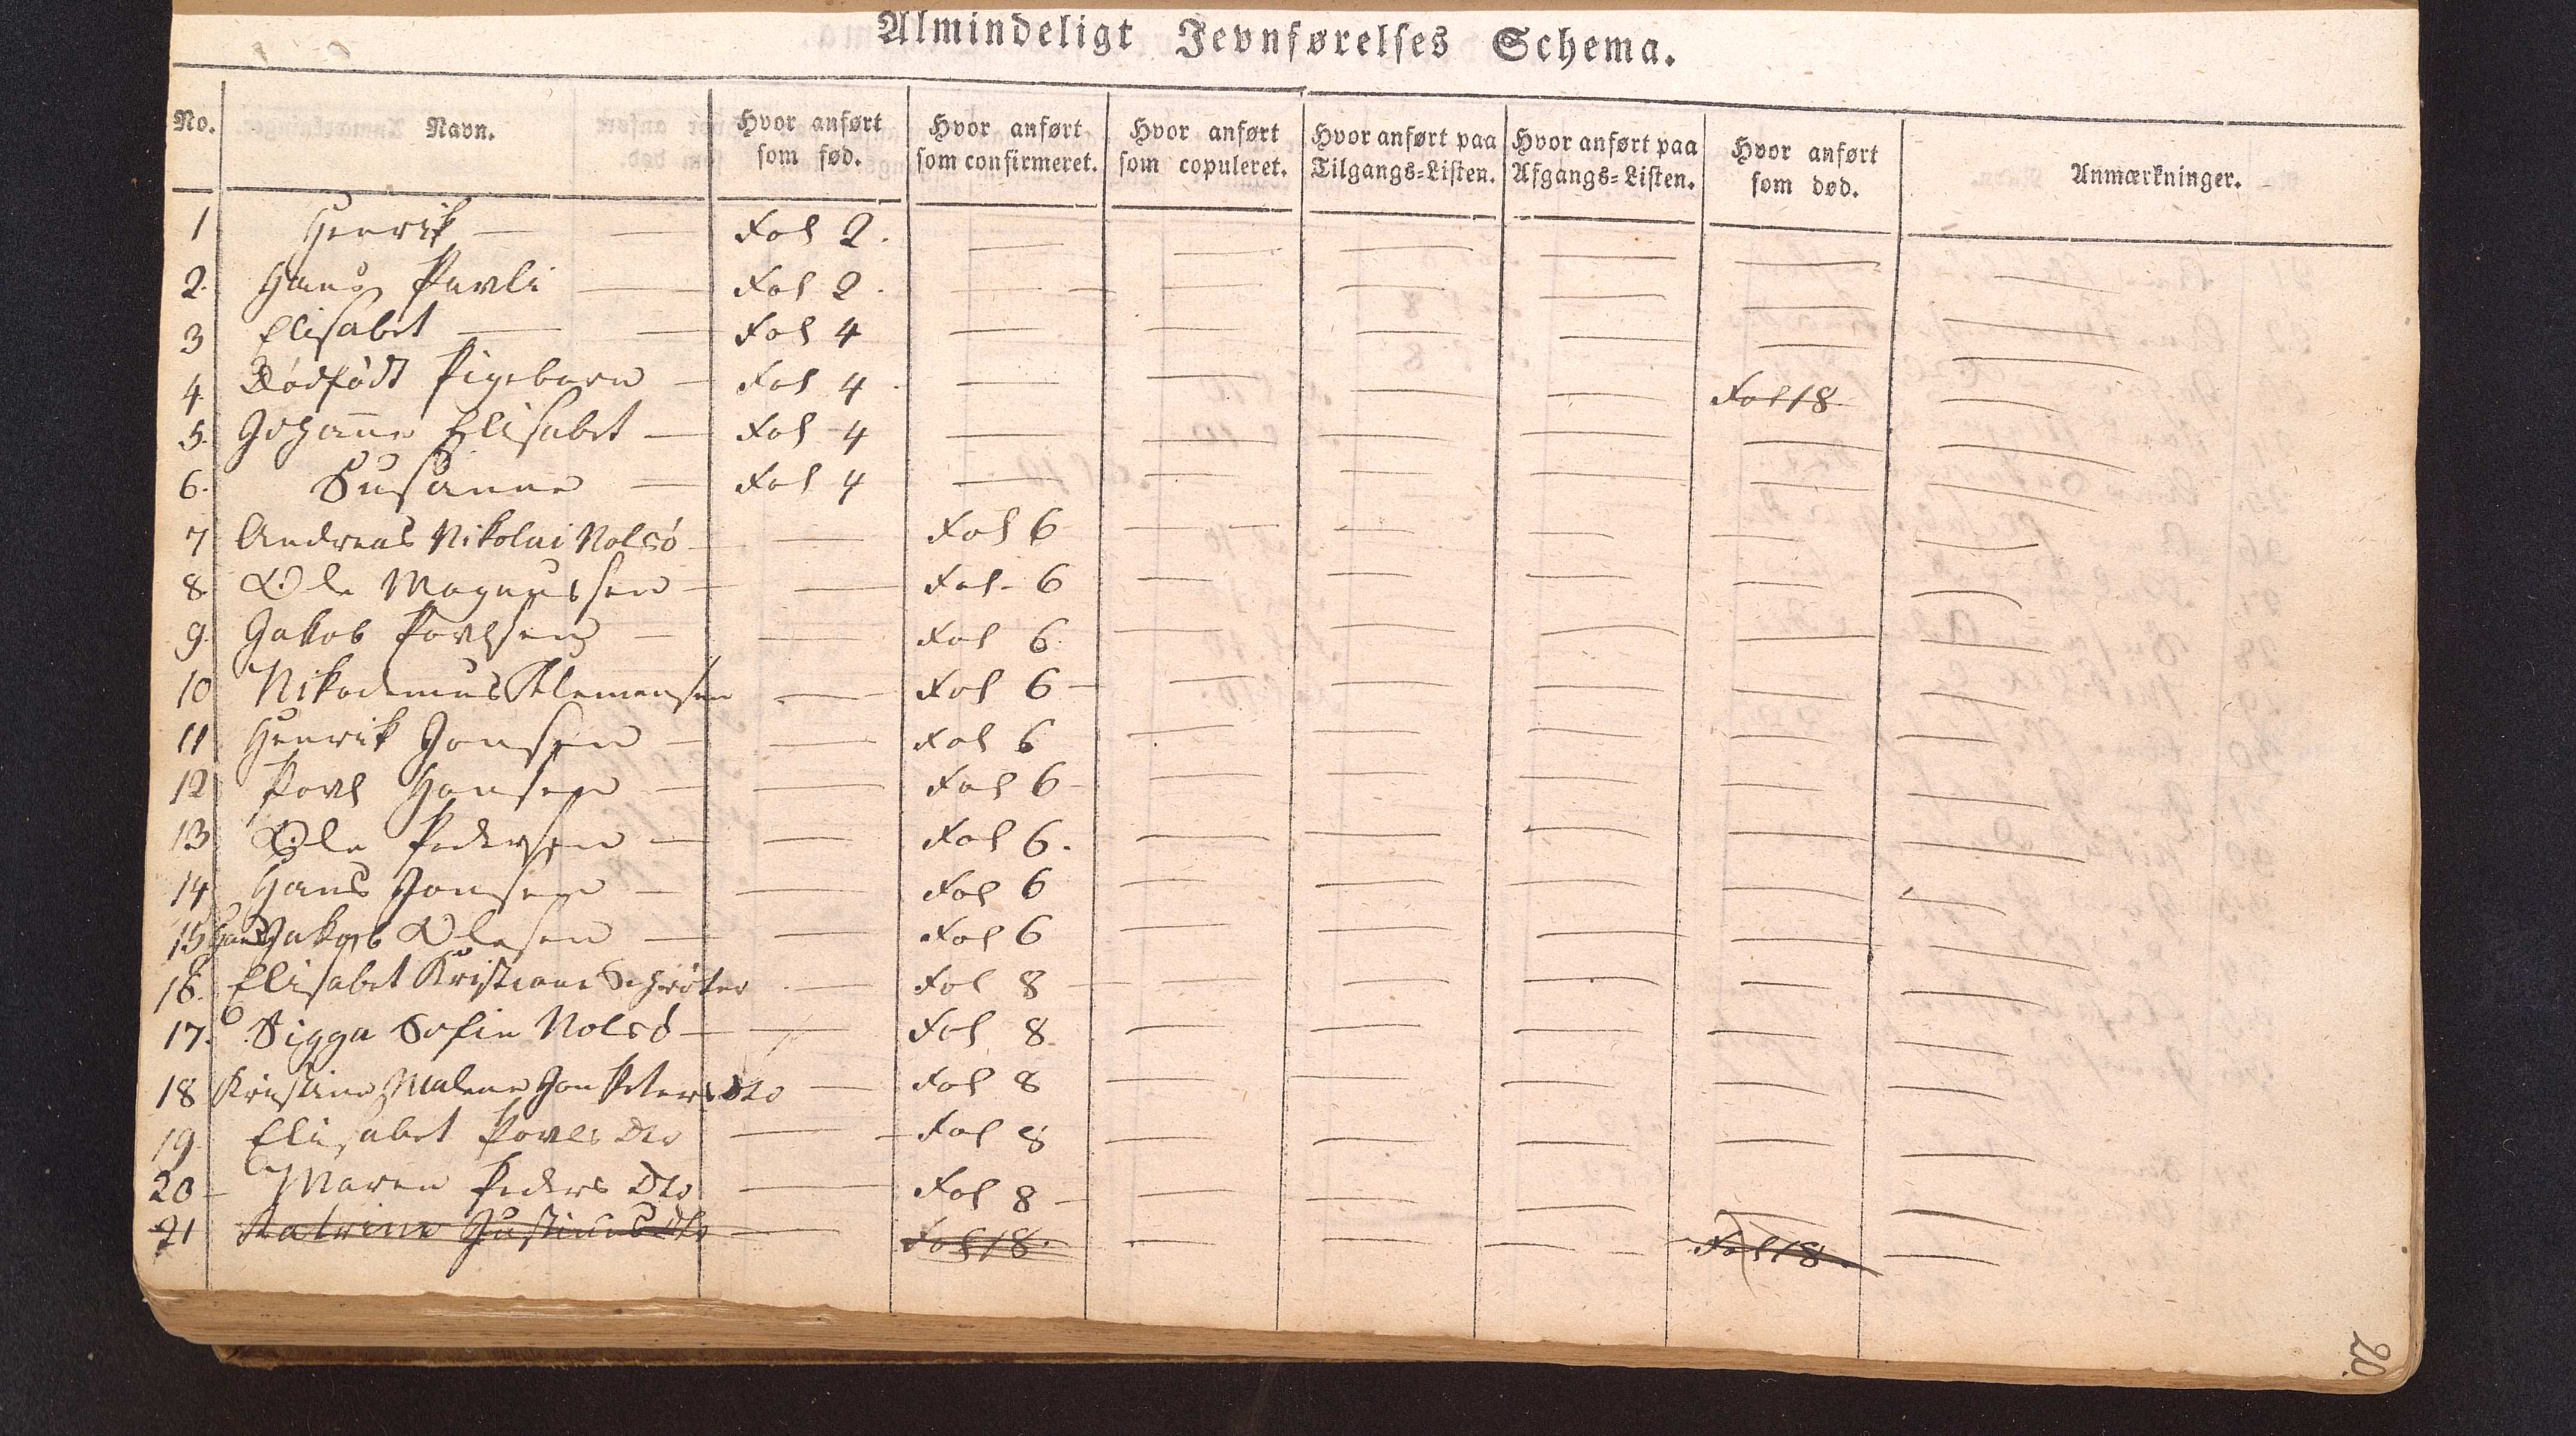 Almindeligt Jevnførelses Schema.
No. Navn. Hvor anført som fød. Hvor anført som confirmeret. Hvor anført som copuleret. Hvor anført paa Tilgangs-Listen. Hvor anført paa Afgangs-Listen. Hvor anført som død. Anmærkninger.
1 Henrik — — Fol 2. — — — — — —
2. Hans Pavli — Fol 2. — — — — — —
3 Elisabet — — Fol 4 — — — — — —
4. Dødfødt Pigebarn — Fol 4. — — — — Fol 18 —
5. Johanne Elisabet — Fol 4 — — — — — —
6. Susanne — Fol 4 — — — — — —
7 Andreas Nikolai Nolsö — — Fol 6 — — — — —
8. Ole Magnussen — — Fol. 6 — — — — —
9. Jakob Povlsen — — Fol 6. — — — — —
10 Nikodemus Klemensen — Fol 6 — — — — —
11 Henrik Jonsen — — Fol 6 — — — — —
12 Povl Hansen — — Fol 6 — — — — —
13 Ole Pedersen — — Fol 6. — — — — —
14 Hans Jonsen — — Fol 6 — — — — —
15 Hans Jakob Olesen — — Fol 6 — — — — —
16. Elisabet Kristiane Schröter — Fol 8 — — — — —
17. Sigga Sofie Nolsö — — Fol 8 — — — — —
18 Kristine Malene Jon Peters Dtr — Fol 8 — — — — —
19. Elisabet Povls Dtr — Fol 8 — — — — —
20 Maren Peders Dtr — Fol 8 — — — — —
21 Katrine Justinus Dtr — Fol 18. — — — Fol 18. —
20.